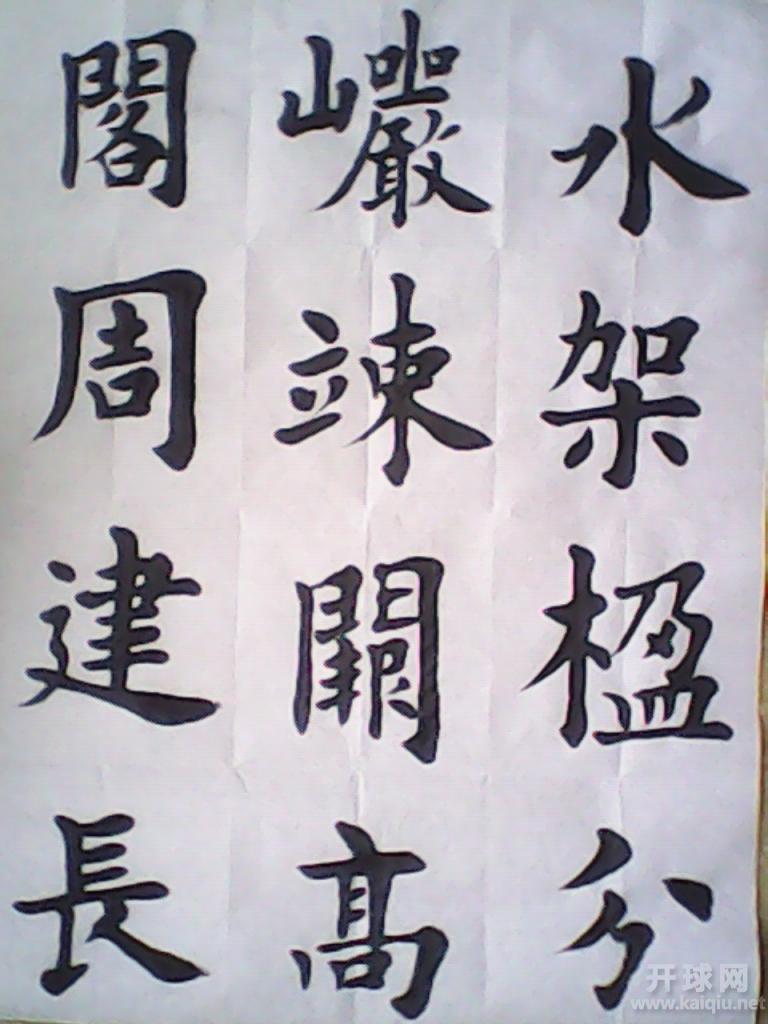 水架楹分
巗竦闕高
閣周建長
开球网
www.kaiqiu.net